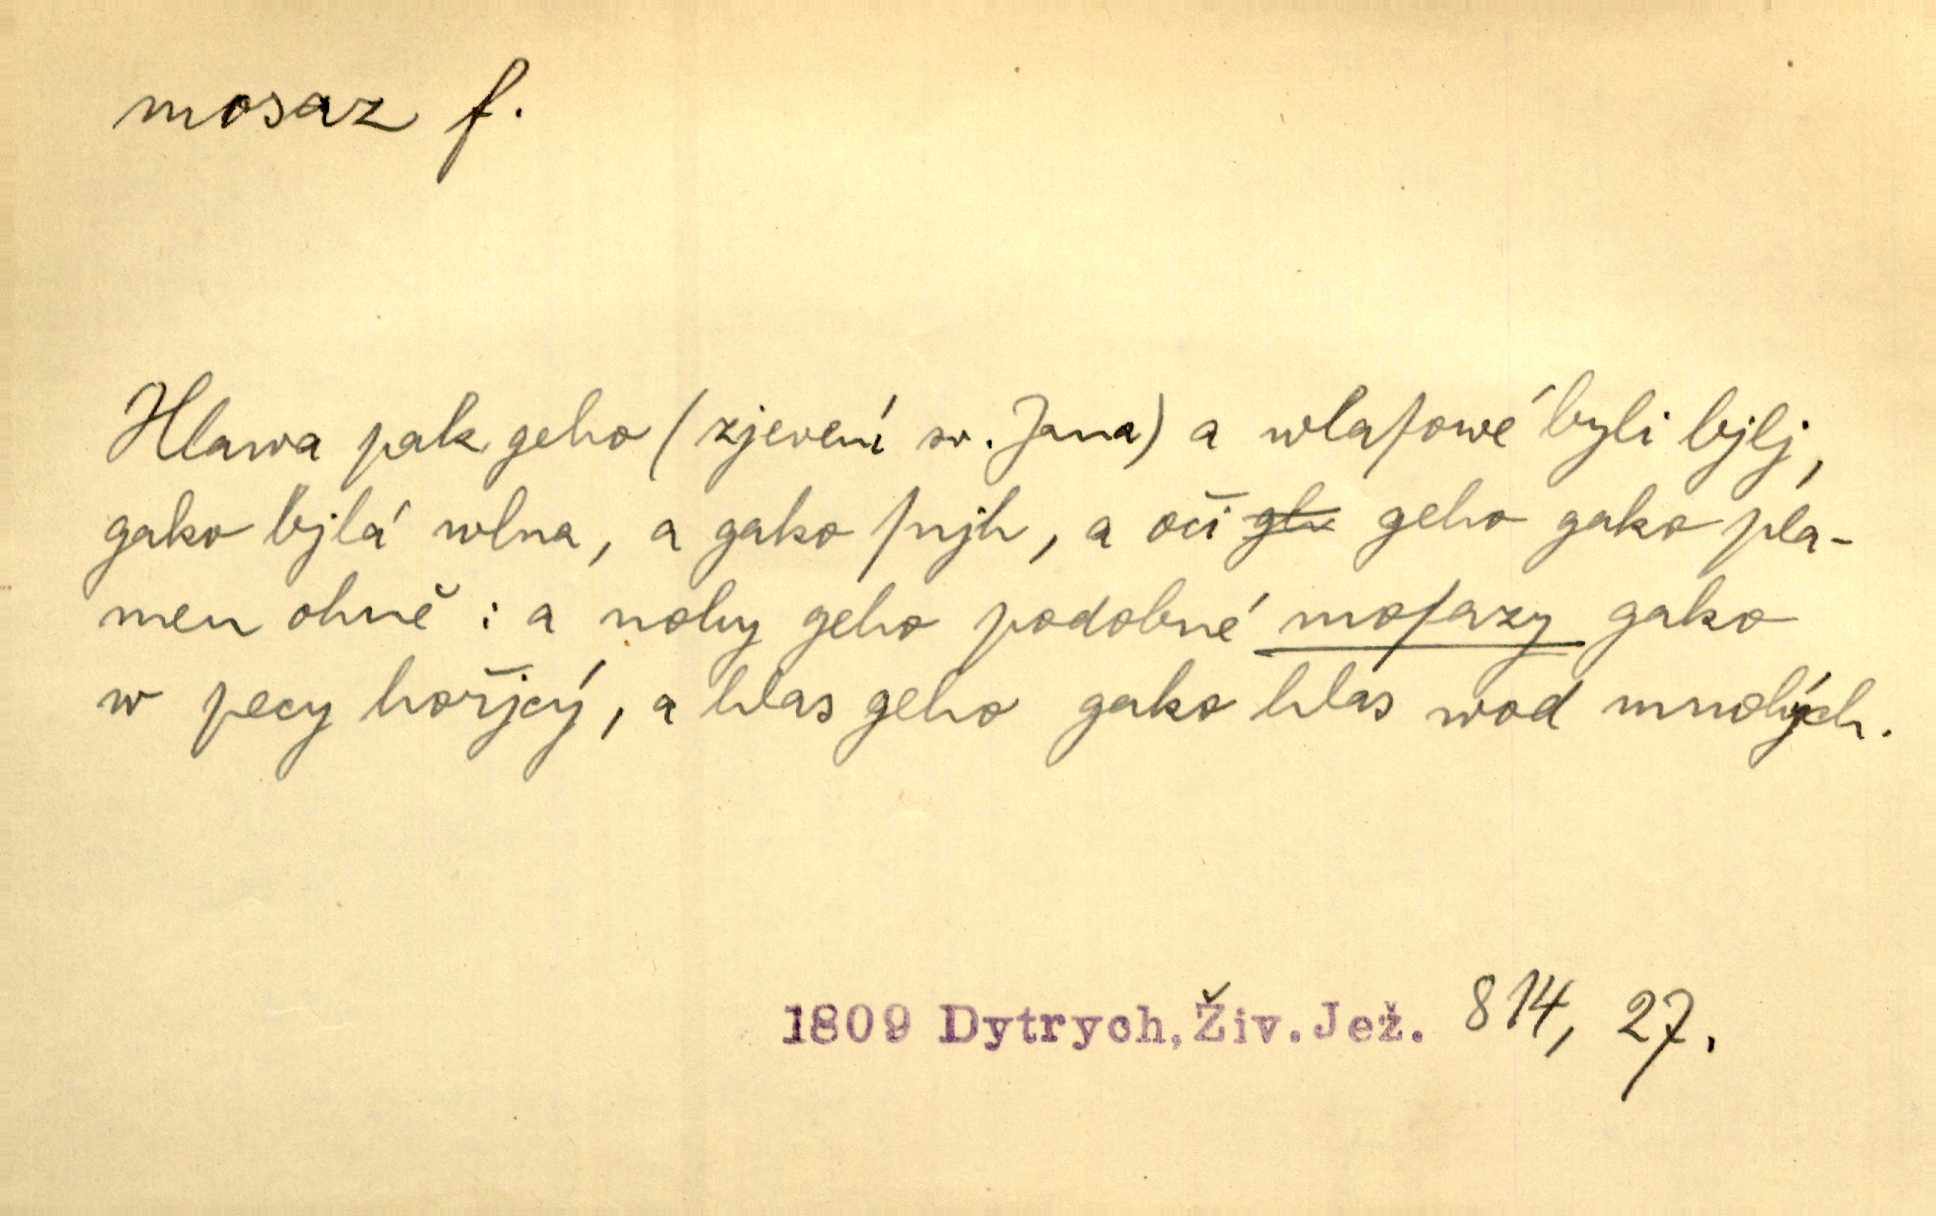 mosaz f.
Hlawa pak geho (zjevení sv. Jana) a wlaſowé byli bjlj,
gako bjlá wlna, a gako ſnjh, a oči geho gako pla-
men ohně : a nohy geho podobné moſazy gako
w pecy hořjcý, a hlas geho gako hlas wod mnohých.
1809 Dytrych, Živ. Jež. 814, 27.